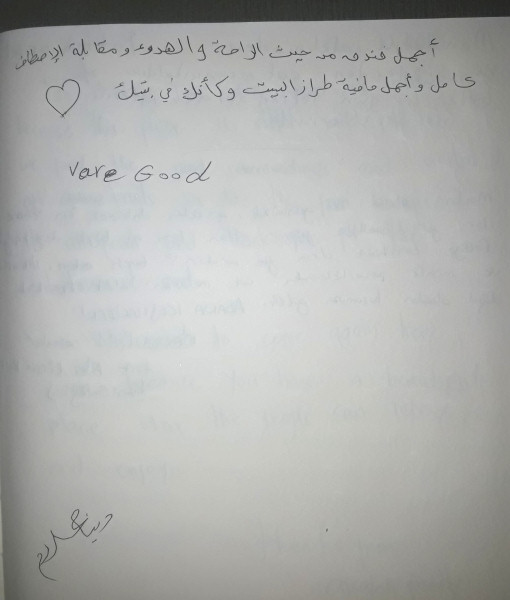 أجمل فندق من حيث الراحة والهدوء ومقابلة الإصطاف
عامل وأجمل مافية طراز البيت وكأنك في بتيك
Vare Good